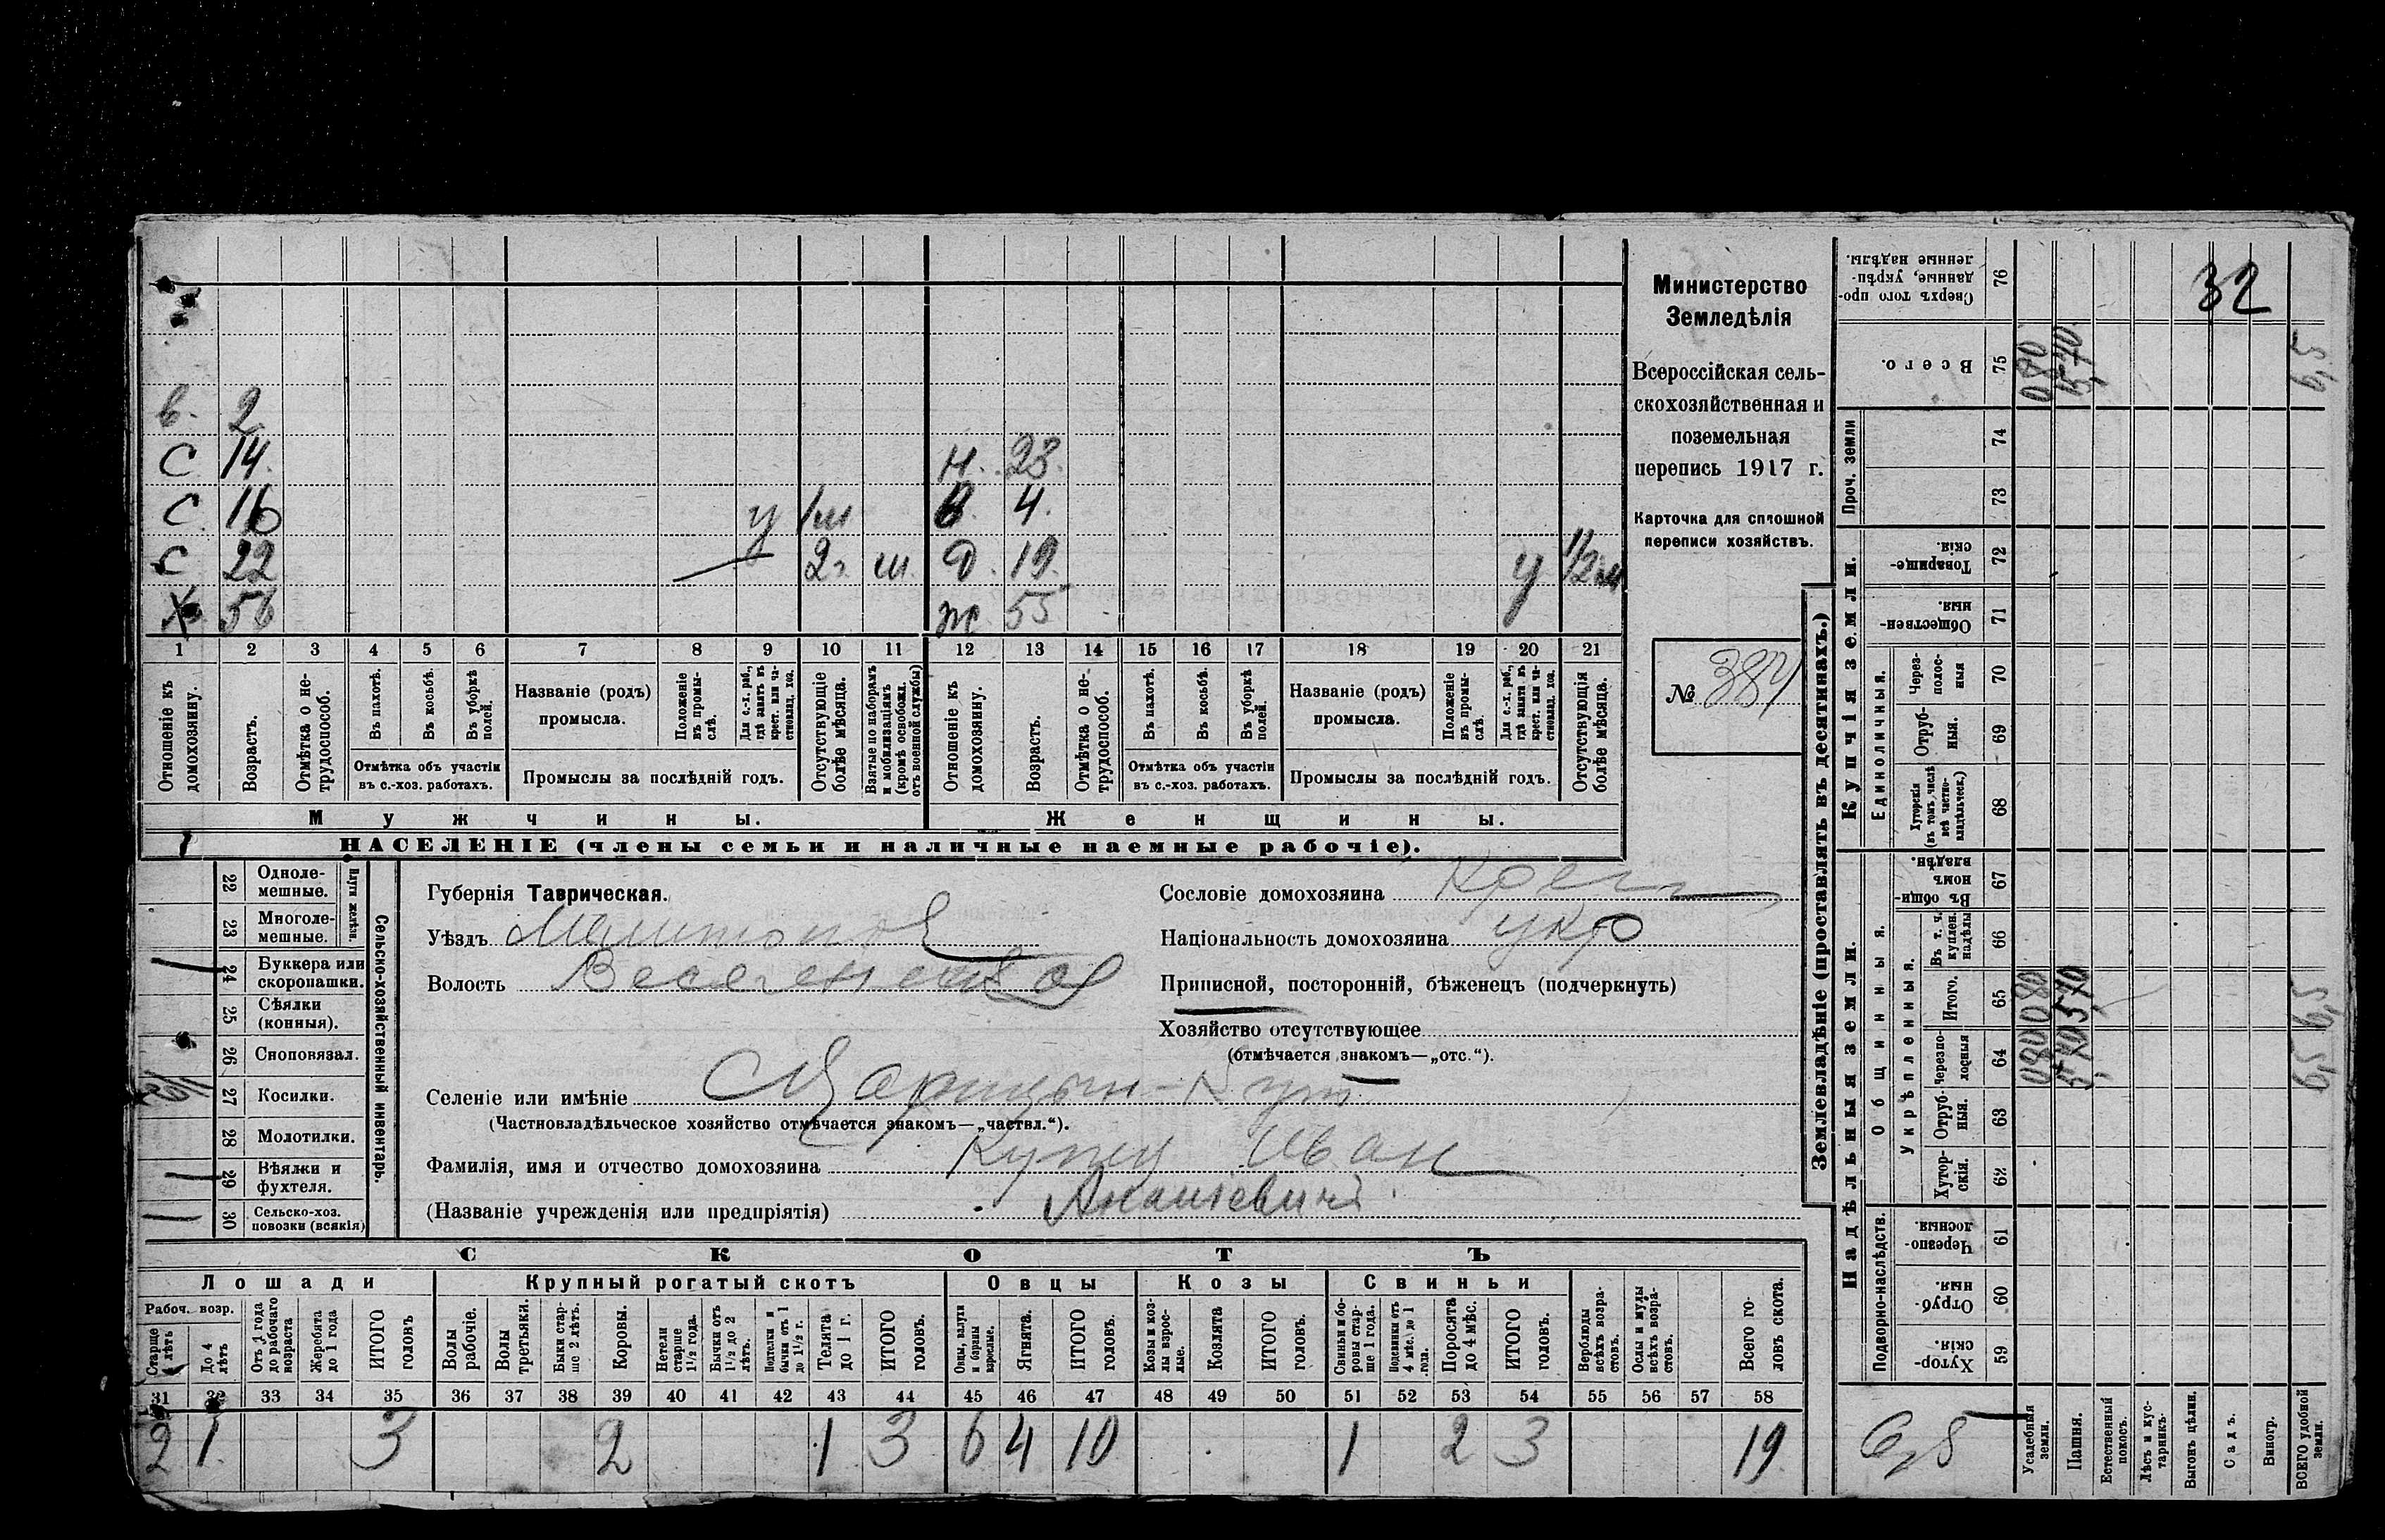 32
в. 2
С 14.
С 16 у 1 м
С 22 2 г. ш.
Х 56
н. 23.
в. 4.
д. 19. у 1/2 м
ж 55
1 2 3 4 5 6 7 8 9 10 11 12 13 14 15 16 17 18 19 20 21
Отношеніе къ домохозяину.
Возрастъ.
Отмѣтка о нетрудоспособ.
Въ пахотѣ.
Въ косьбѣ.
Въ уборкѣ полей.
Отмѣтка объ участіи въ с.-хоз. работахъ.
Названіе (родъ) промысла.
Положеніе въ промыслѣ.
Для с.-х. раб., гдѣ занятъ въ крест. или частновлад. хоз.
Промыслы за послѣдній годъ.
Отсутствующіе болѣе мѣсяца.
Взятые по наборамъ и мобилизаціямъ (кромѣ освобожд. отъ военной службы)
Отношеніе къ домохозяину.
Возрастъ.
Отмѣтка о нетрудоспособ.
Въ пахотѣ.
Въ косьбѣ.
Въ уборкѣ полей.
Отмѣтка объ участіи въ с.-хоз. работахъ.
Названіе (родъ) промысла.
Положеніе въ промыслѣ.
Для с.-х. раб., гдѣ занята въ крест. или частновлад. хоз.
Промыслы за послѣдній годъ.
Отсутствующія болѣе мѣсяца.
Мужчины.
Женщины.
НАСЕЛЕНІЕ (члены семьи и наличные наемные рабочіе).
Министерство
Земледѣлія
Всероссійская сель-
скохозяйственная и
поземельная
перепись 1917 г.
Карточка для сплошной
переписи хозяйствъ.
№ 384
22 Однолемешные.
23 Многолемешные.
Плуги желѣзн.
24 Буккера или скоропашки.
25 Сѣялки (конныя).
26 Сноповязал.
1/2 27 Косилки.
28 Молотилки.
29 Вѣялки и фухтеля.
30 Сельско-хоз. повозки (всякія)
Сельско-хозяйственный инвентарь.
Губернія Таврическая.
Уѣздъ Мелитопол
Волость Веселенская
Сословіе домохозяина Крест
Національность домохозяина укр
Приписной, посторонній, бѣженецъ (подчеркнуть)
Хозяйство отсутствующее
(отмѣчается знакомъ—„отс.“).
Селеніе или имѣніе Царицын-Кут
(Частновладѣльческое хозяйство отмѣчается знакомъ—„частвл.“).
Фамилія, имя и отчество домохозяина Купец Иван
(Названіе учрежденія или предпріятія) Ананіевичъ
СКОТЪ
Лошади Крупный рогатый скотъ Овцы Козы Свиньи
Рабоч. возр.
Старше 4 лѣтъ
До 4 лѣтъ
Отъ 1 года до рабочаго возраста
Жеребята до 1 года
ИТОГО головъ
Волы рабочіе.
Волы третьяки.
Быки старше 2 лѣтъ.
Коровы.
Нетели старше 1½ года.
Бычки отъ 1½ до 2 лѣтъ.
Подтелки и бычки отъ 1 до 1½ г.
Телята до 1 г.
ИТОГО головъ.
Овцы, валухи и бараны взрослые.
Ягнята.
ИТОГО головъ.
Козы и козлы взрослые.
Козлята
ИТОГО головъ.
Свиньи и боровы старше 1 года.
Подсвинки отъ 4 мѣс. до 1 года.
Поросята до 4 мѣс.
ИТОГО головъ.
Верблюды всѣхъ возрастовъ.
Ослы и мулы всѣхъ возрастовъ.
Всего головъ скота.
31 32 33 34 35 36 37 38 39 40 41 42 43 44 45 46 47 48 49 50 51 52 53 54 55 56 57 58
2 1 3 2 1 3 6 4 10 1 2 3 19
Землевладѣніе (проставлять въ десятинахъ.)
Надѣльныя земли.
Купчія земли.
Проч. земли
Подворно-наслѣдств.
Общинныя.
Укрѣпленныя.
Единоличныя.
59 Хуторскія.
60 Отрубныя.
61 Черезполосныя
62 Хуторскія.
63 Отрубныя.
64 Черезполосныя 080 5,70 6,5
65 Итого. 080 5,70 6,5
66 Въ т. ч. куплен. надѣлы
67 Въ общинномъ владѣн.
68 Хуторскія (въ томъ числѣ всѣ частновладѣльческ.)
69 Отрубныя.
70 Черезполосныя
71 Общественныя.
72 Товарищескія.
73
74
75 Всего. 080 5,70 6,5
76 Сверхъ того проданные, укрѣпленные надѣлы.
6,5
Усадебныя земли.
Пашня.
Естественный покосъ.
Лѣсъ и кустарникъ.
Выгонъ цѣлин.
Садъ.
Виногр.
ВСЕГО удобной земли.